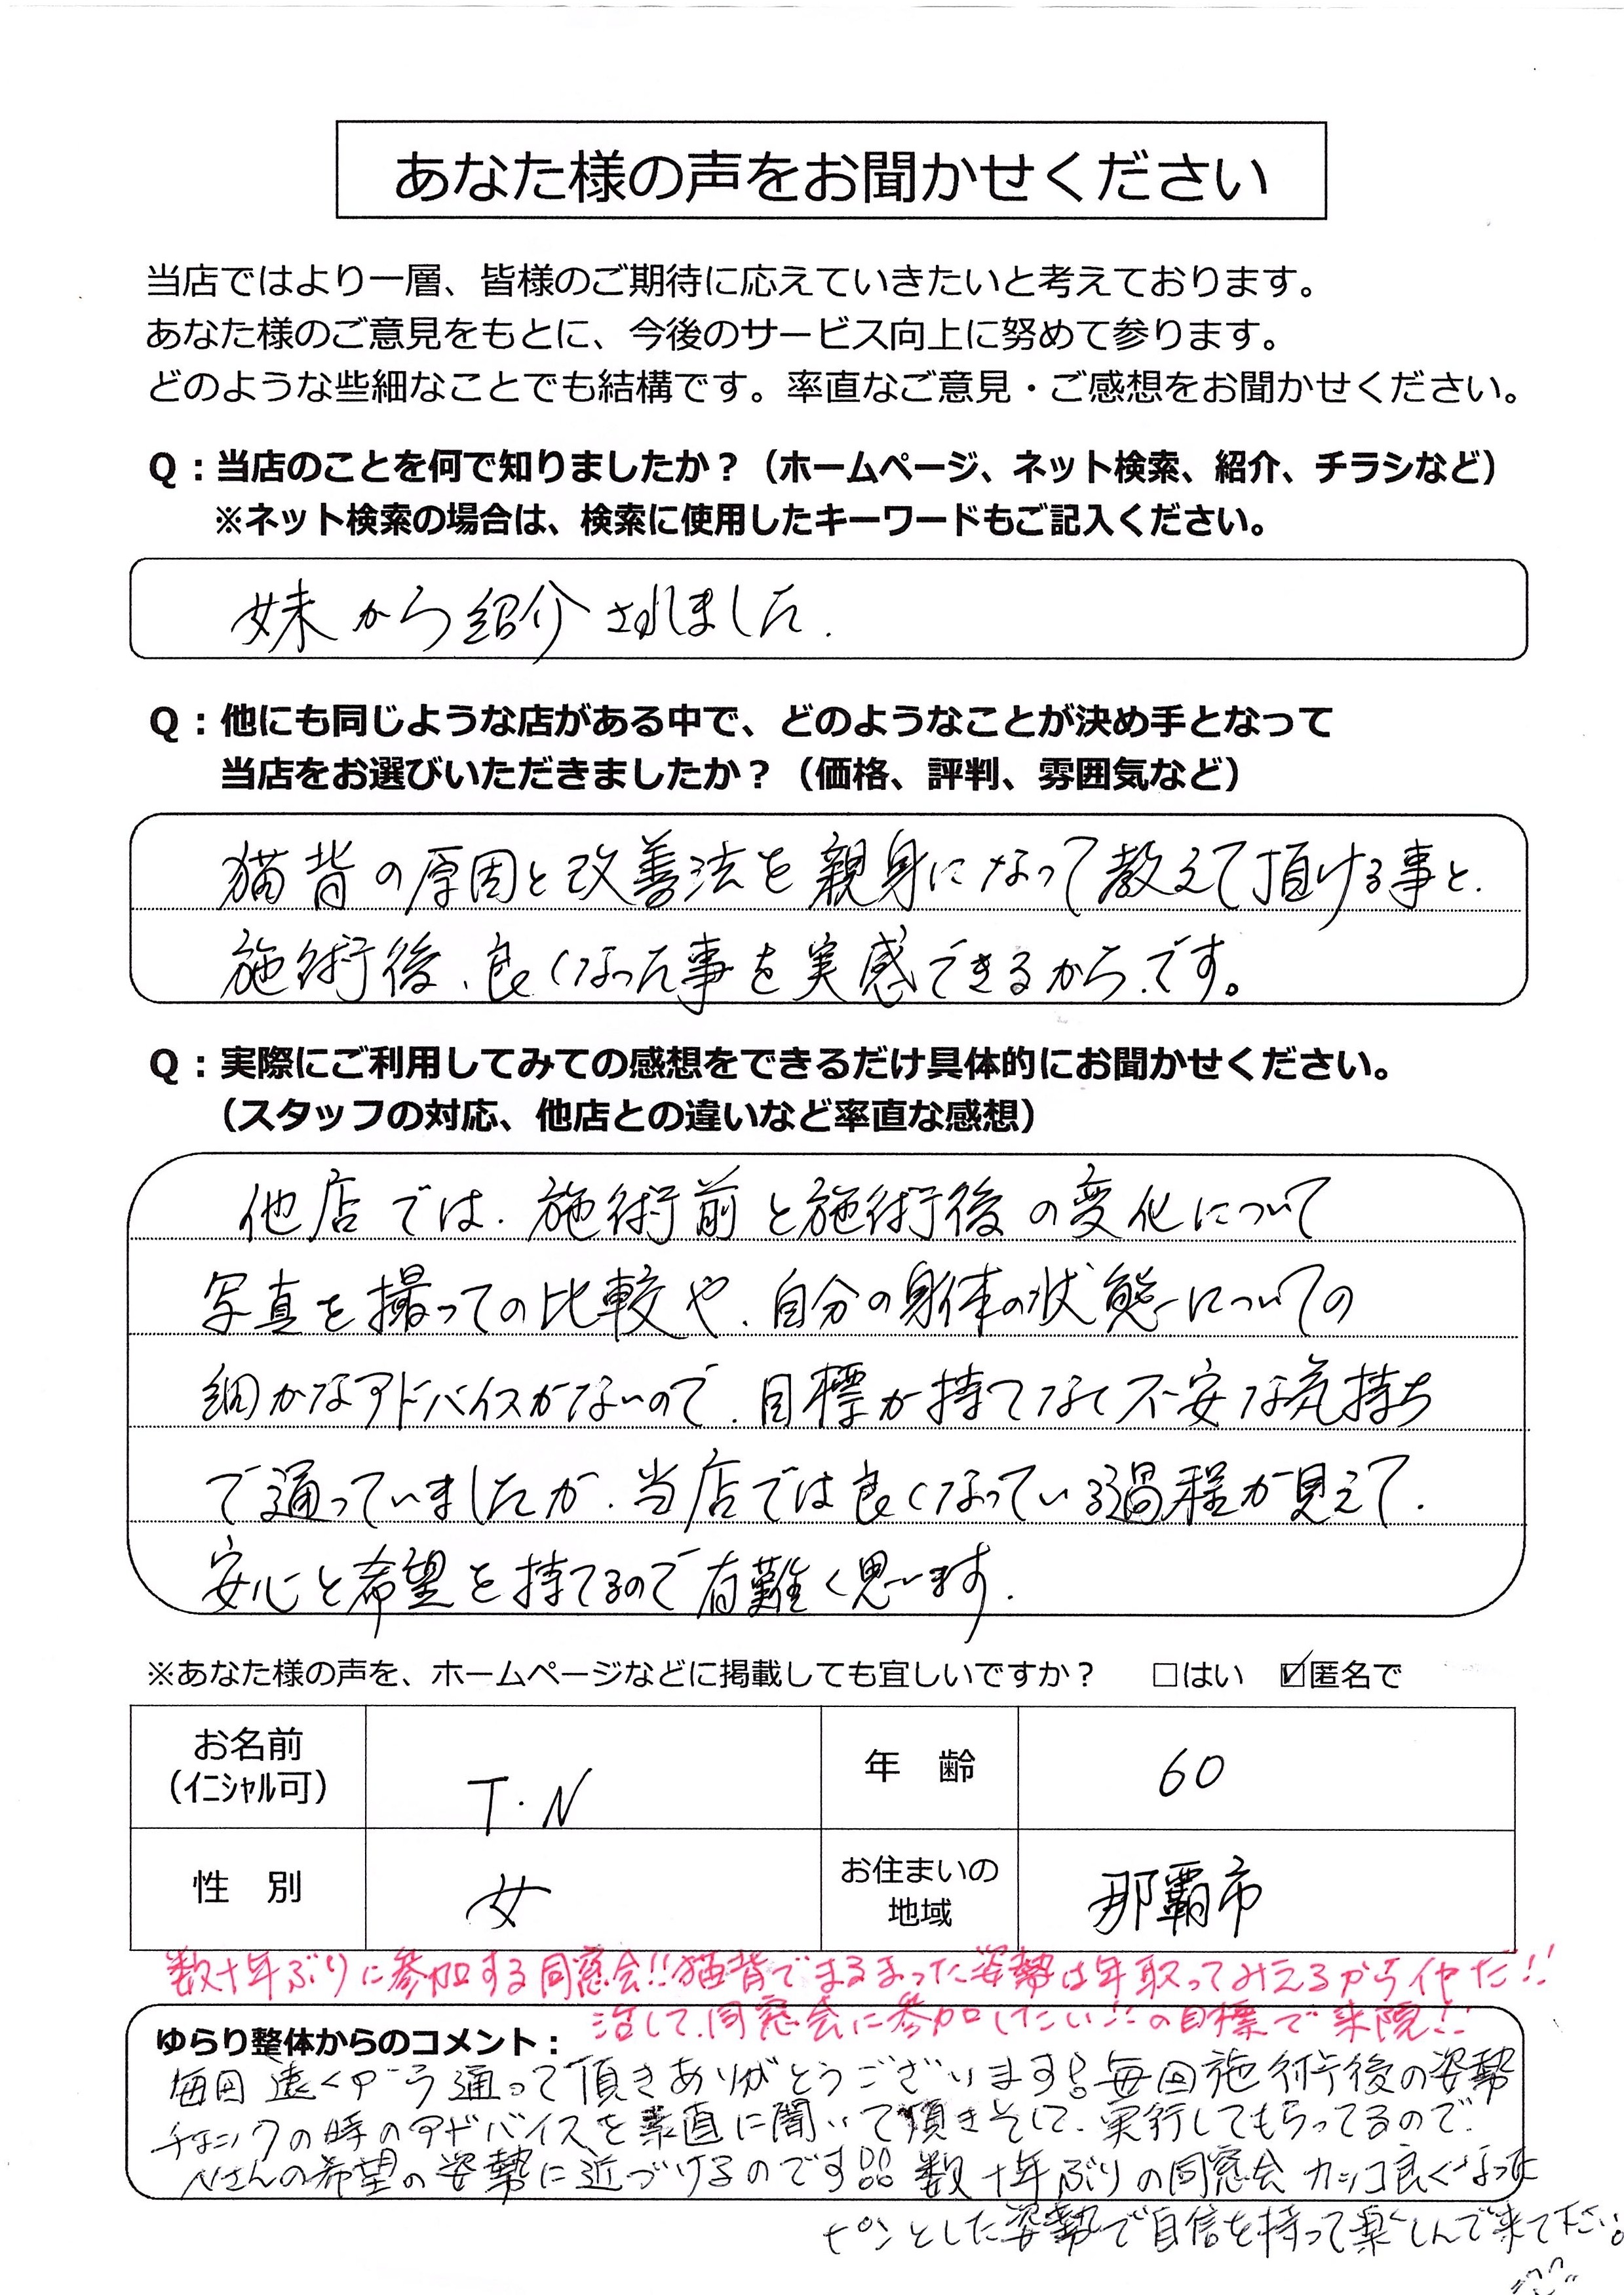 あなた様の声をお聞かせください
当店ではより一層、皆様のご期待に応えていきたいと考えております。
あなた様のご意見をもとに、今後のサービス向上に努めて参ります。
どのような些細なことでも結構です。率直なご意見・ご感想をお聞かせください。
Q：当店のことを何で知りましたか？（ホームページ、ネット検索、紹介、チラシなど）
※ネット検索の場合は、検索に使用したキーワードもご記入ください。
妹から紹介されました.
Q：他にも同じような店がある中で、どのようなことが決め手となって
当店をお選びいただきましたか？（価格、評判、雰囲気など）
猫背の原因と改善法を親身になって教えて頂ける事と、
施術後、良くなった事を実感できるからです。
Q：実際にご利用してみての感想をできるだけ具体的にお聞かせください。
（スタッフの対応、他店との違いなど率直な感想）
他店では、施術前と施術後の変化について
写真を撮っての比較や、自分の身体の状態についての
細かなアドバイスがないので、目標が持てなく不安な気持ち
で通っていましたが、当店では良くなっている過程が見えて、
安心と希望を持てるので有難く思います.
※あなた様の声を、ホームページなどに掲載しても宜しいですか？ □はい ☑匿名で
お名前 年 齢 60
（イニシャル可） T.N
性 別 女 お住まいの 那覇市
地域
数十年ぶりに参加する同窓会!!猫背でまるまった姿勢は年取ってみえるからイヤだ!!
治して、同窓会に参加したい!!の目標で来院!!
ゆらり整体からのコメント：
毎回遠くから通って頂きありがとうございます!毎回施術後の姿勢
チェックの時のアドバイスを素直に聞いて頂きそして、実行してもらってるので、
Nさんの希望の姿勢に近づけるのです!!数十年ぶりの同窓会カッコ良くなった
ピンとした姿勢で自信を持って楽しんで来て下さい。